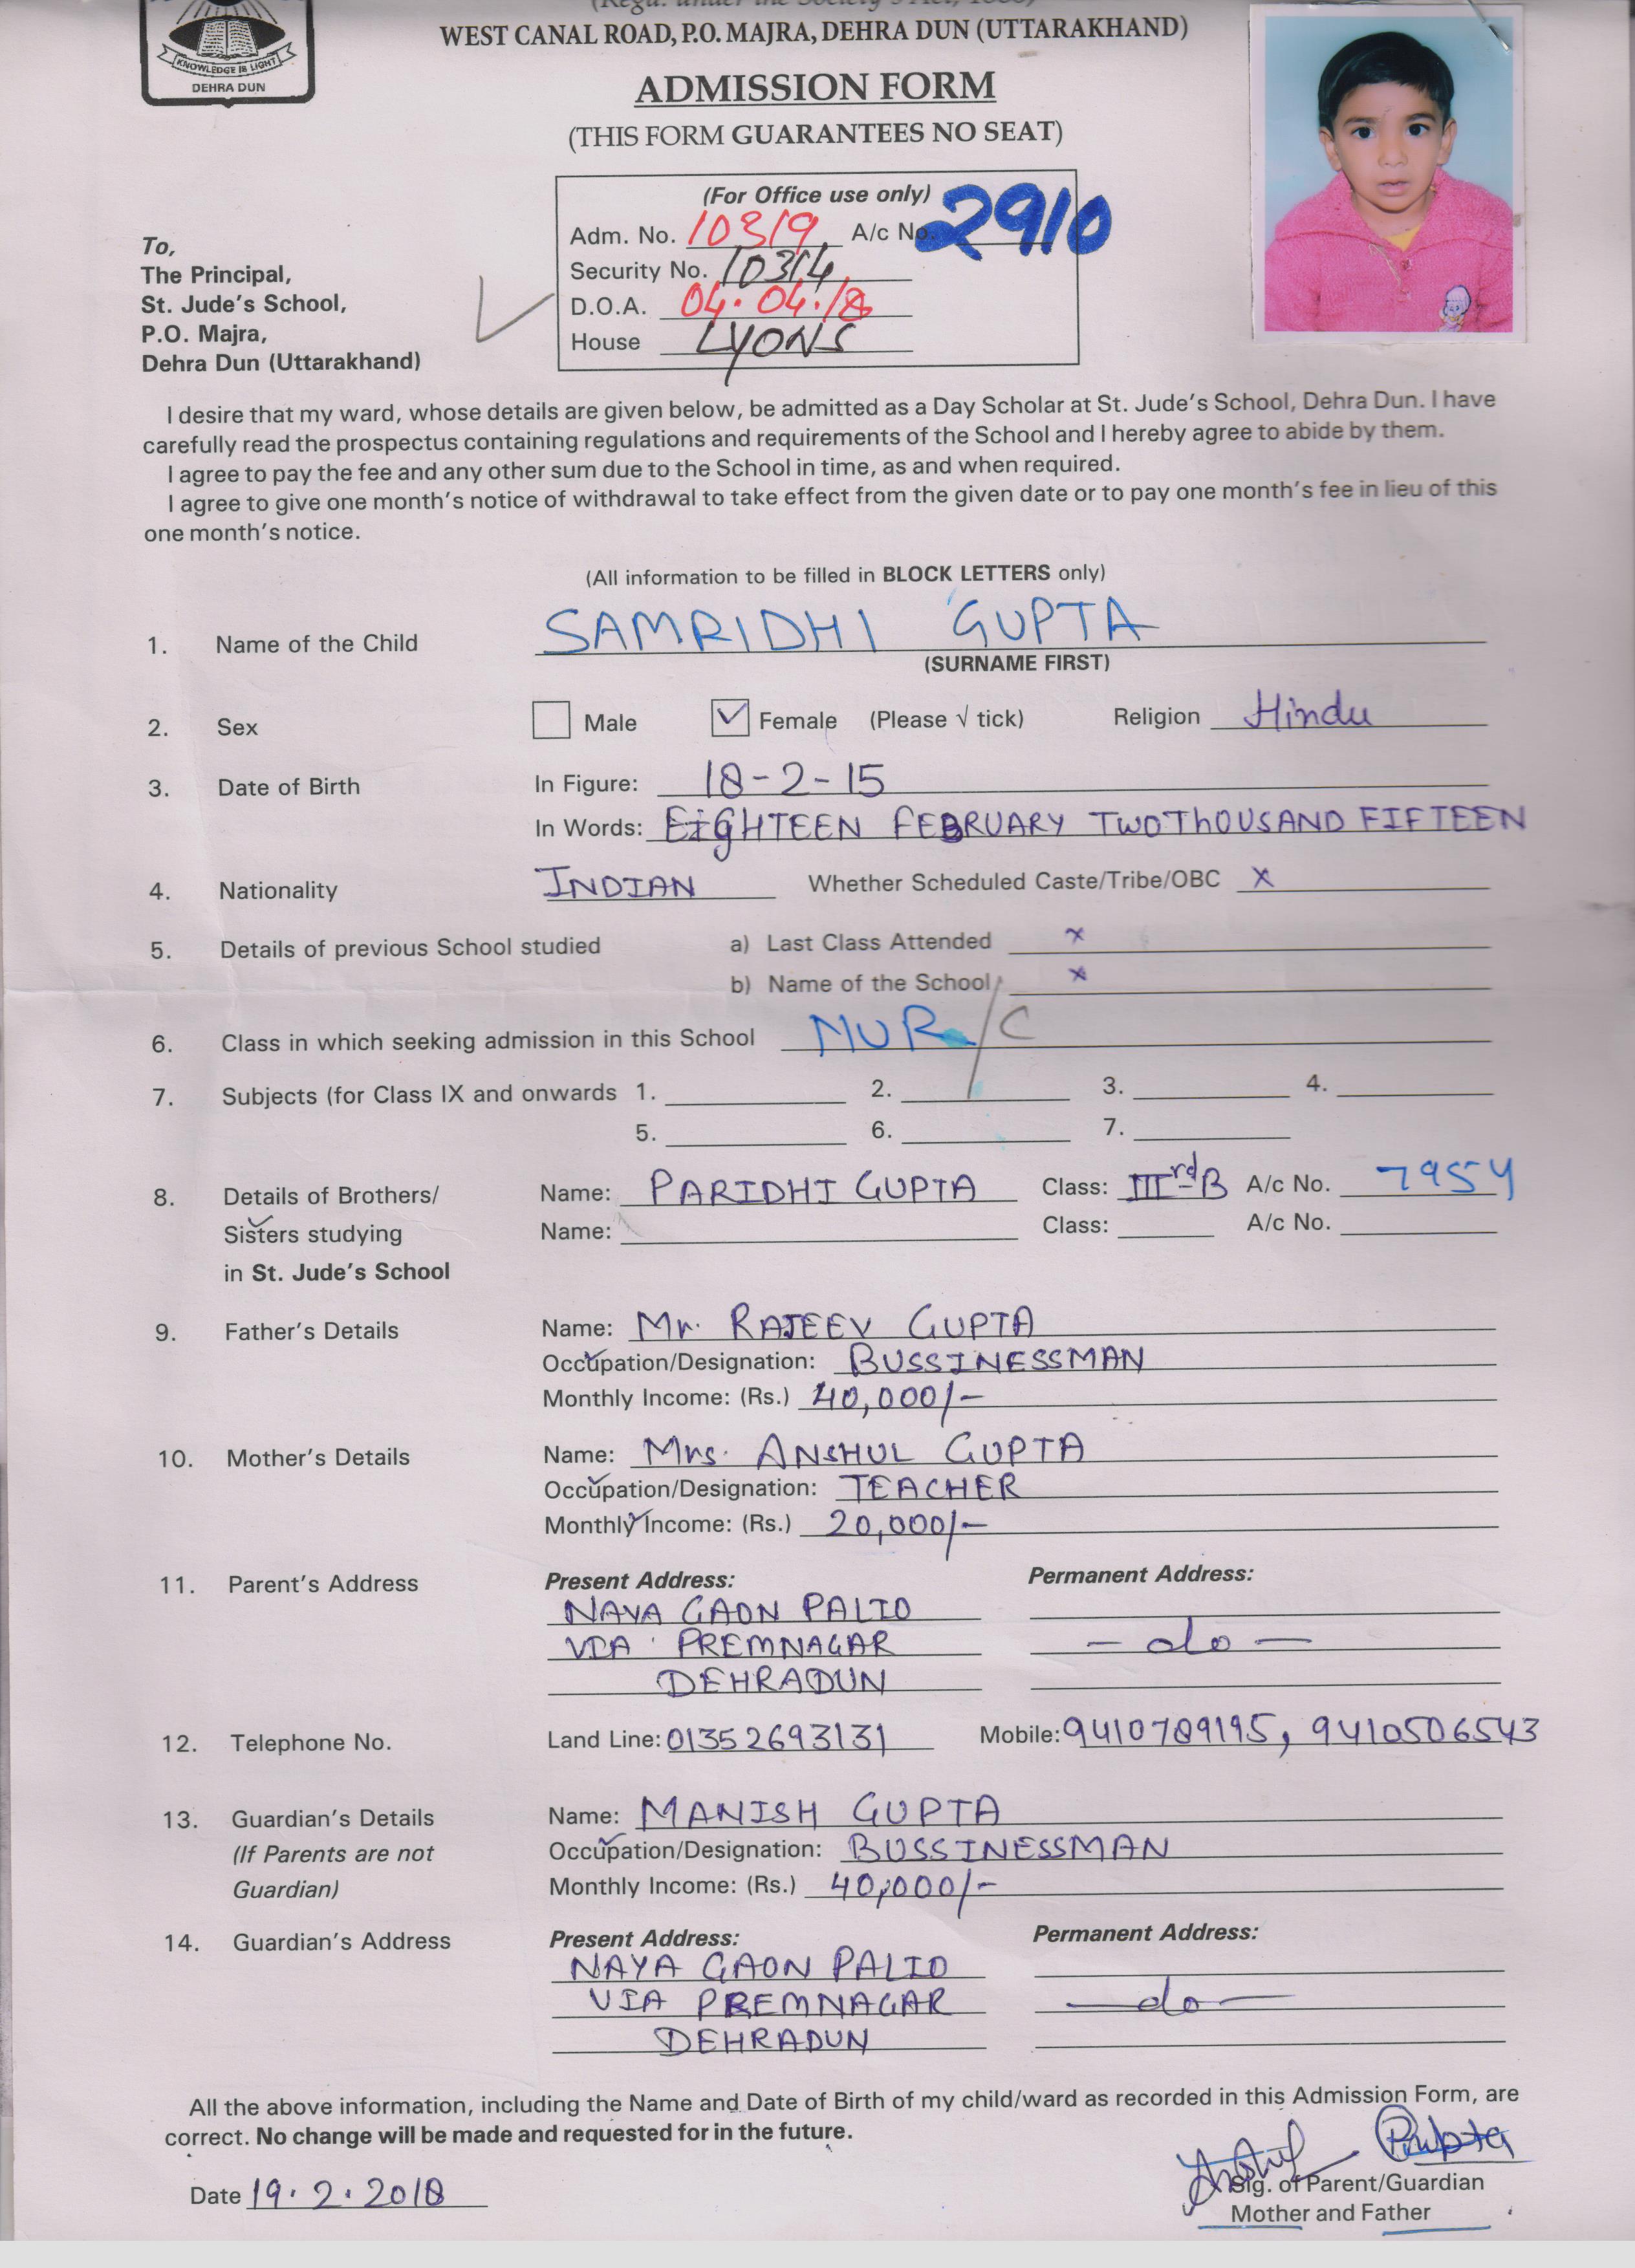 KNOWLEDGE IS LIGHT
DEHRA DUN
WEST CANAL ROAD, P.O. MAJRA, DEHRA DUN (UTTARAKHAND)
ADMISSION FORM
(THIS FORM GUARANTEES NO SEAT)
(For Office use only)
Adm. No. 10319 A/c No. 2910
Security No. 10314
D.O.A. 04.04.18
House LYONS
To,
The Principal,
St. Jude's School,
P.O. Majra,
Dehra Dun (Uttarakhand)
I desire that my ward, whose details are given below, be admitted as a Day Scholar at St. Jude's School, Dehra Dun. I have
carefully read the prospectus containing regulations and requirements of the School and I hereby agree to abide by them.
I agree to pay the fee and any other sum due to the School in time, as and when required.
I agree to give one month's notice of withdrawal to take effect from the given date or to pay one month's fee in lieu of this
one month's notice.
(All information to be filled in BLOCK LETTERS only)
1. Name of the Child SAMRIDHI GUPTA
(SURNAME FIRST)
2. Sex Male ✓ Female (Please √ tick) Religion Hindu
3. Date of Birth In Figure: 18-2-15
In Words: EIGHTEEN FEBRUARY TWO THOUSAND FIFTEEN
4. Nationality INDIAN Whether Scheduled Caste/Tribe/OBC x
5. Details of previous School studied a) Last Class Attended x
b) Name of the School x
6. Class in which seeking admission in this School NUR/C
7. Subjects (for Class IX and onwards 1. 2. 3. 4.
5. 6. 7.
8. Details of Brothers/ Name: PARIDHI GUPTA Class: IIIrd B A/c No. 7954
Sisters studying Name: Class: A/c No.
in St. Jude's School
9. Father's Details Name: Mr. RAJEEV GUPTA
Occupation/Designation: BUSSINESSMAN
Monthly Income: (Rs.) 40,000/-
10. Mother's Details Name: Mrs. ANSHUL GUPTA
Occupation/Designation: TEACHER
Monthly Income: (Rs.) 20,000/-
11. Parent's Address Present Address: Permanent Address:
NAYA GAON PALIO
VIA PREMNAGAR - do -
DEHRADUN
12. Telephone No. Land Line: 01352693131 Mobile: 9410789195, 9410506543
13. Guardian's Details Name: MANISH GUPTA
(If Parents are not Occupation/Designation: BUSSINESSMAN
Guardian) Monthly Income: (Rs.) 40,000/-
14. Guardian's Address Present Address: Permanent Address:
NAYA GAON PALIO
VIA PREMNAGAR - do -
DEHRADUN
All the above information, including the Name and Date of Birth of my child/ward as recorded in this Admission Form, are
correct. No change will be made and requested for in the future.
Date 19.2.2018
Sig. of Parent/Guardian
Mother and Father